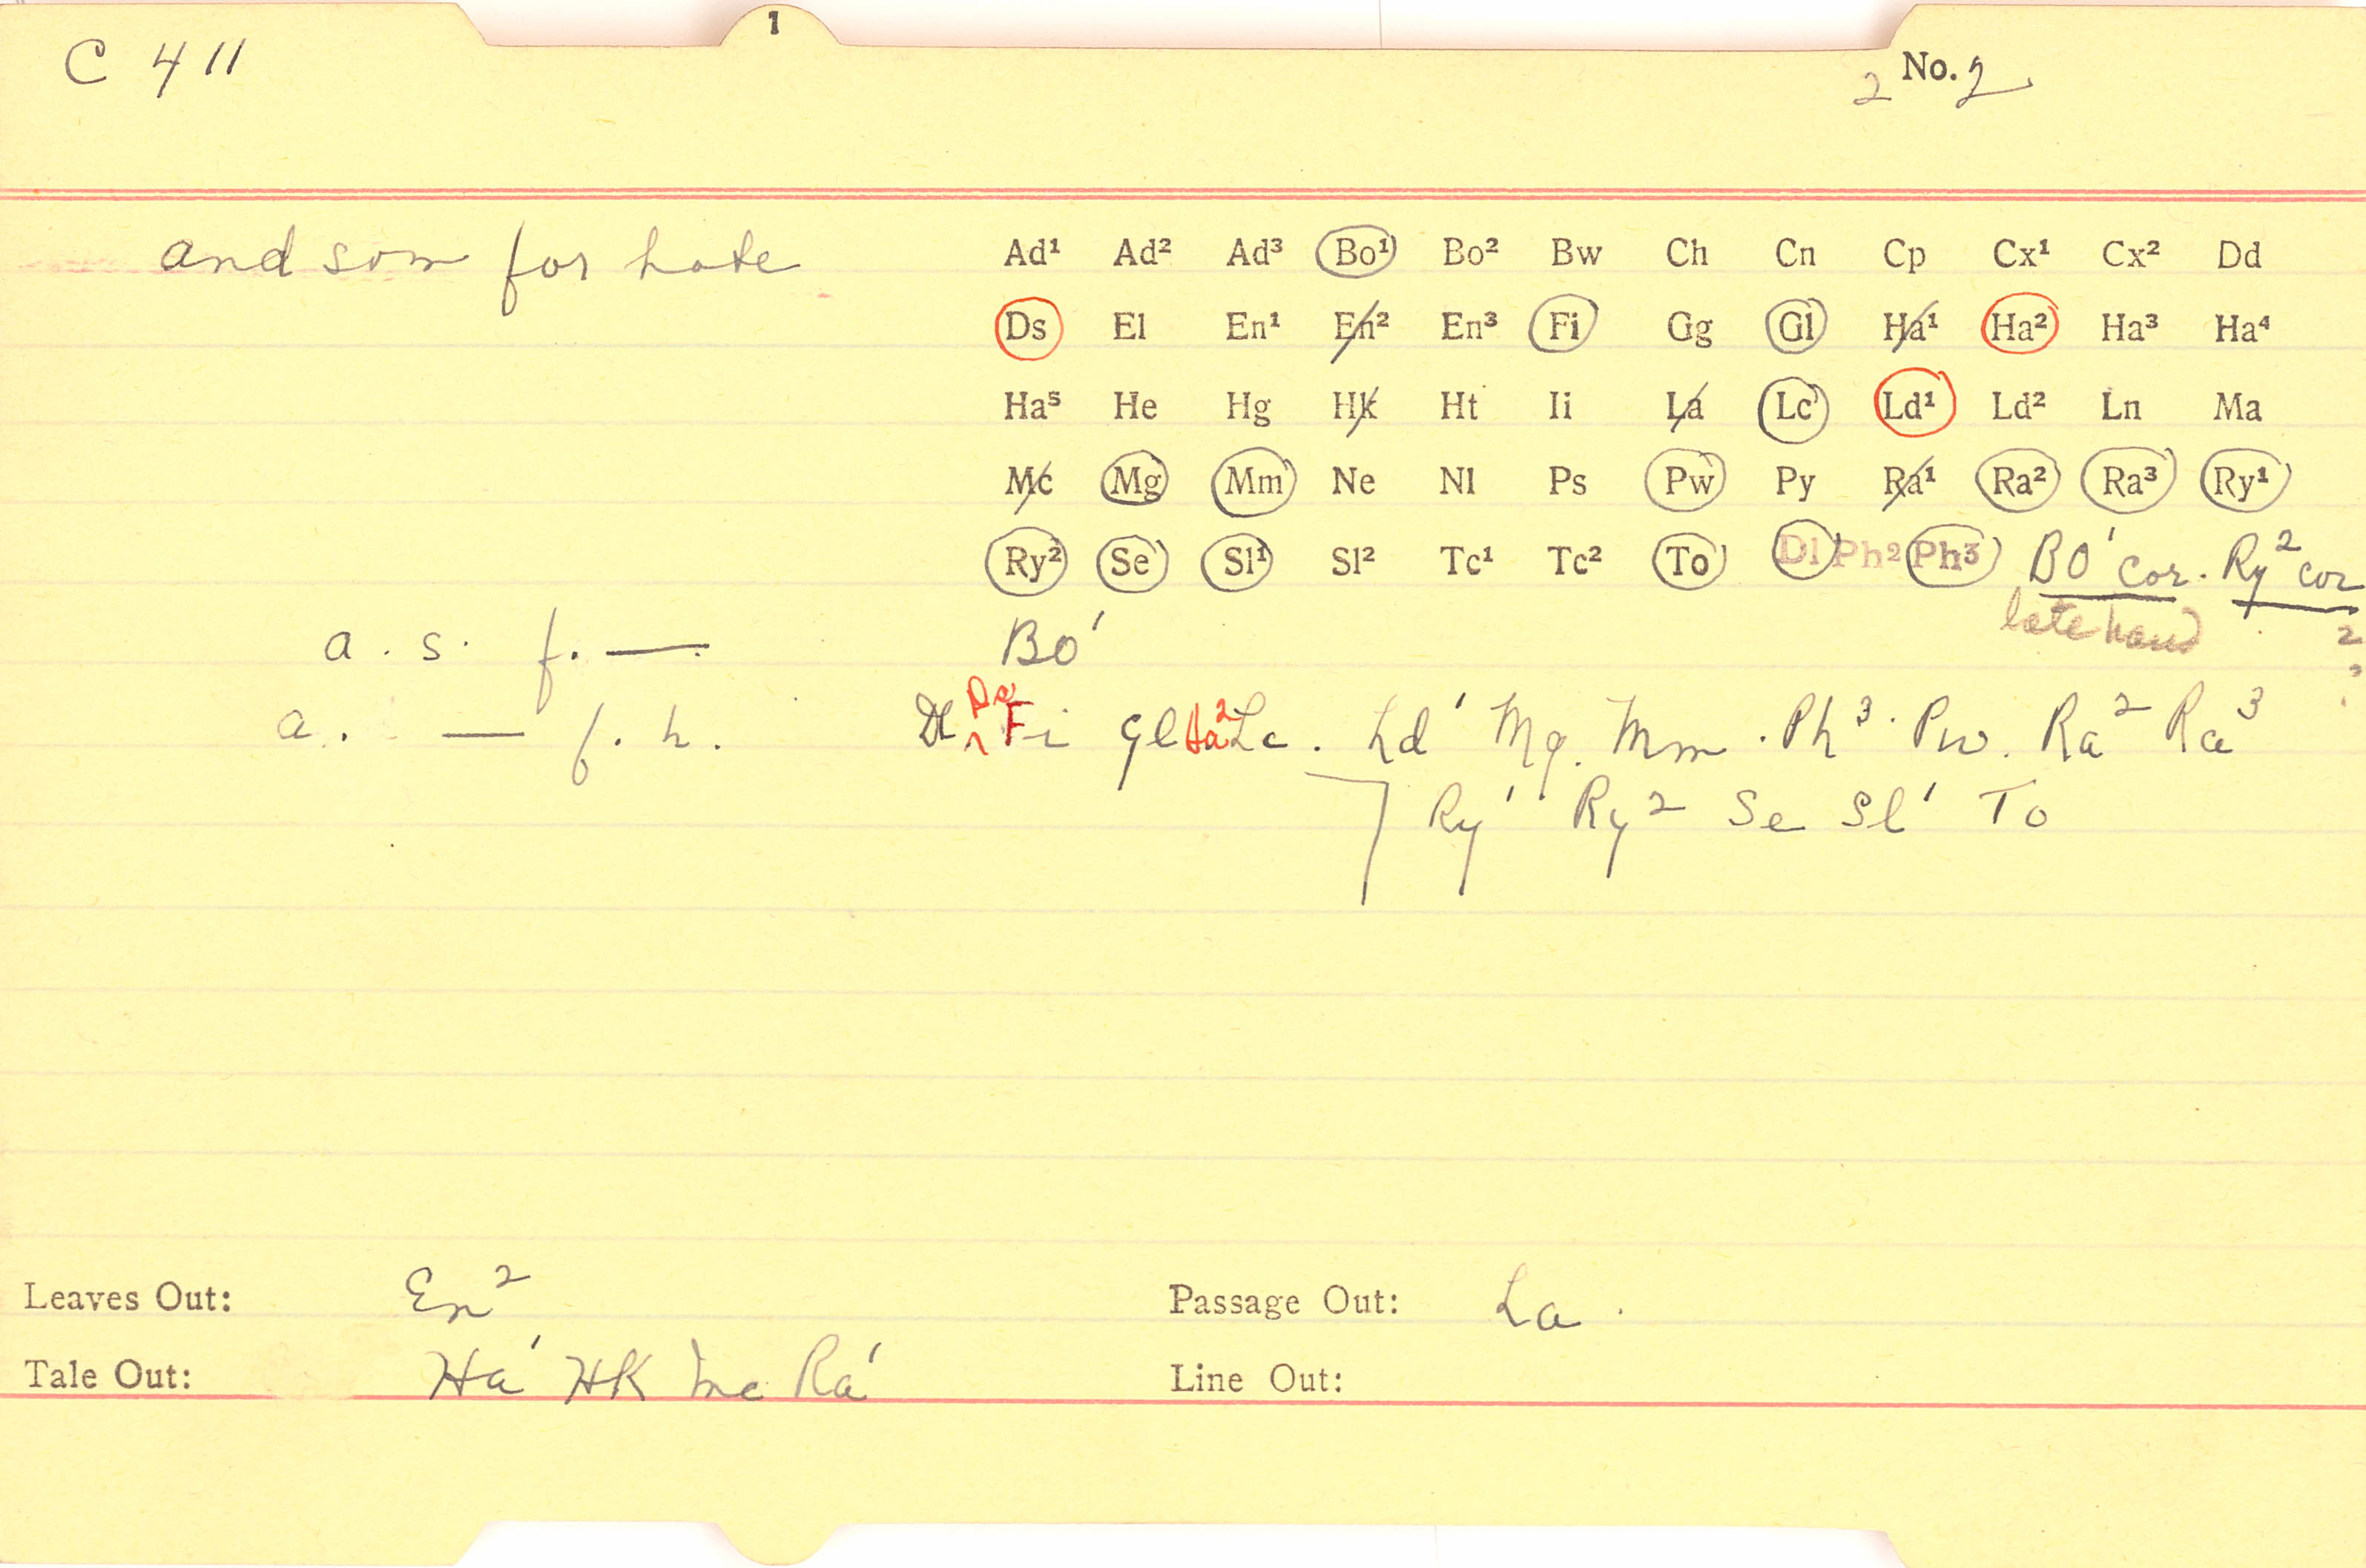 1
C 411
2 No. 2
and som for hate
Ad¹ Ad² Ad³ Bo¹ Bo² Bw Ch Cn Cp Cx¹ Cx² Dd
Ds El En¹ En² En³ Fi Gg Gl Ha¹ Ha² Ha³ Ha⁴
Ha⁵ He Hg Hk Ht Ii La Lc Ld¹ Ld² Ln Ma
Mc Mg Mm Ne Nl Ps Pw Py Ra¹ Ra² Ra³ Ry¹
Ry² Se Sl¹ Sl² Tc¹ Tc² To Dl Ph2 Ph3 Bo¹ cor. Ry² cor
late hand 2
a. s. f. — Bo¹
a. — f. h. Dl Ds Fi Gl Ha² Lc. Ld¹ Mg. Mm. Ph³. Pw. Ra² Ra³
Ry¹ Ry² Se Sl¹ To
Leaves Out: En² Passage Out: La.
Tale Out: Ha¹ HK Mc Ra¹ Line Out: